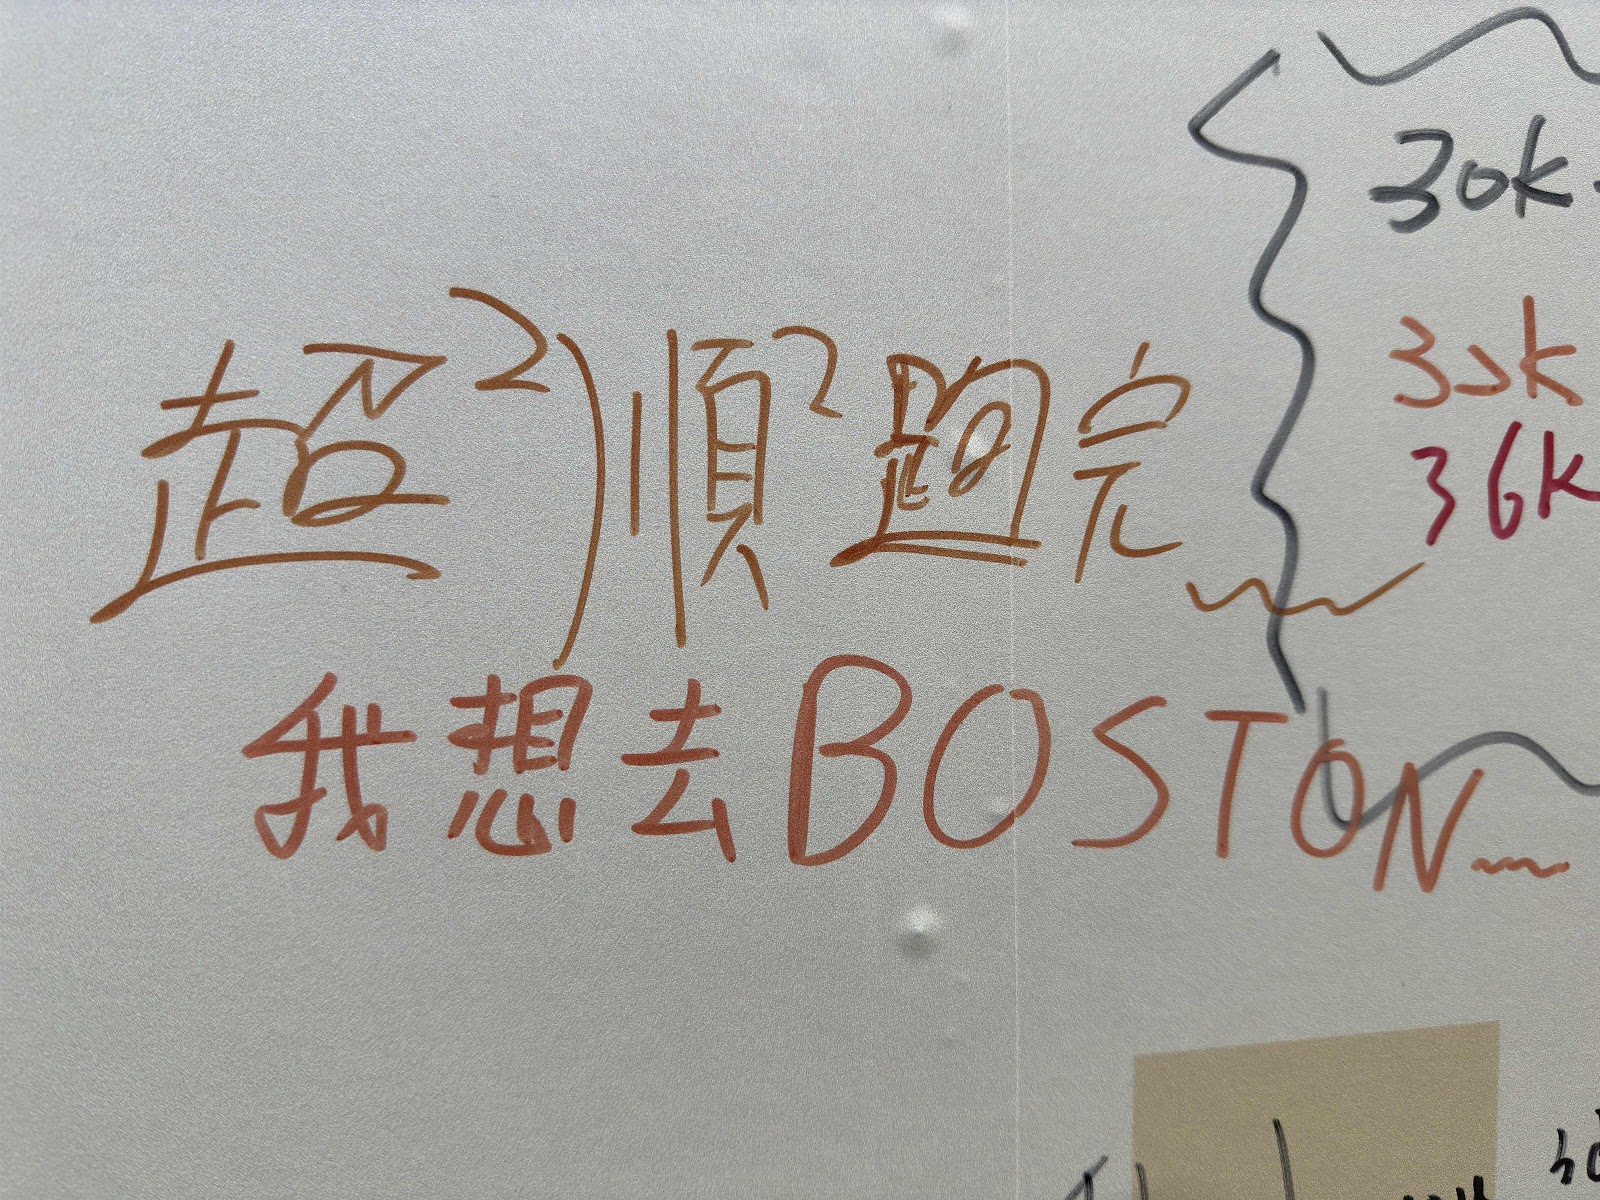 超²順²跑完~
我想去BOSTON...
30K
35K
36K